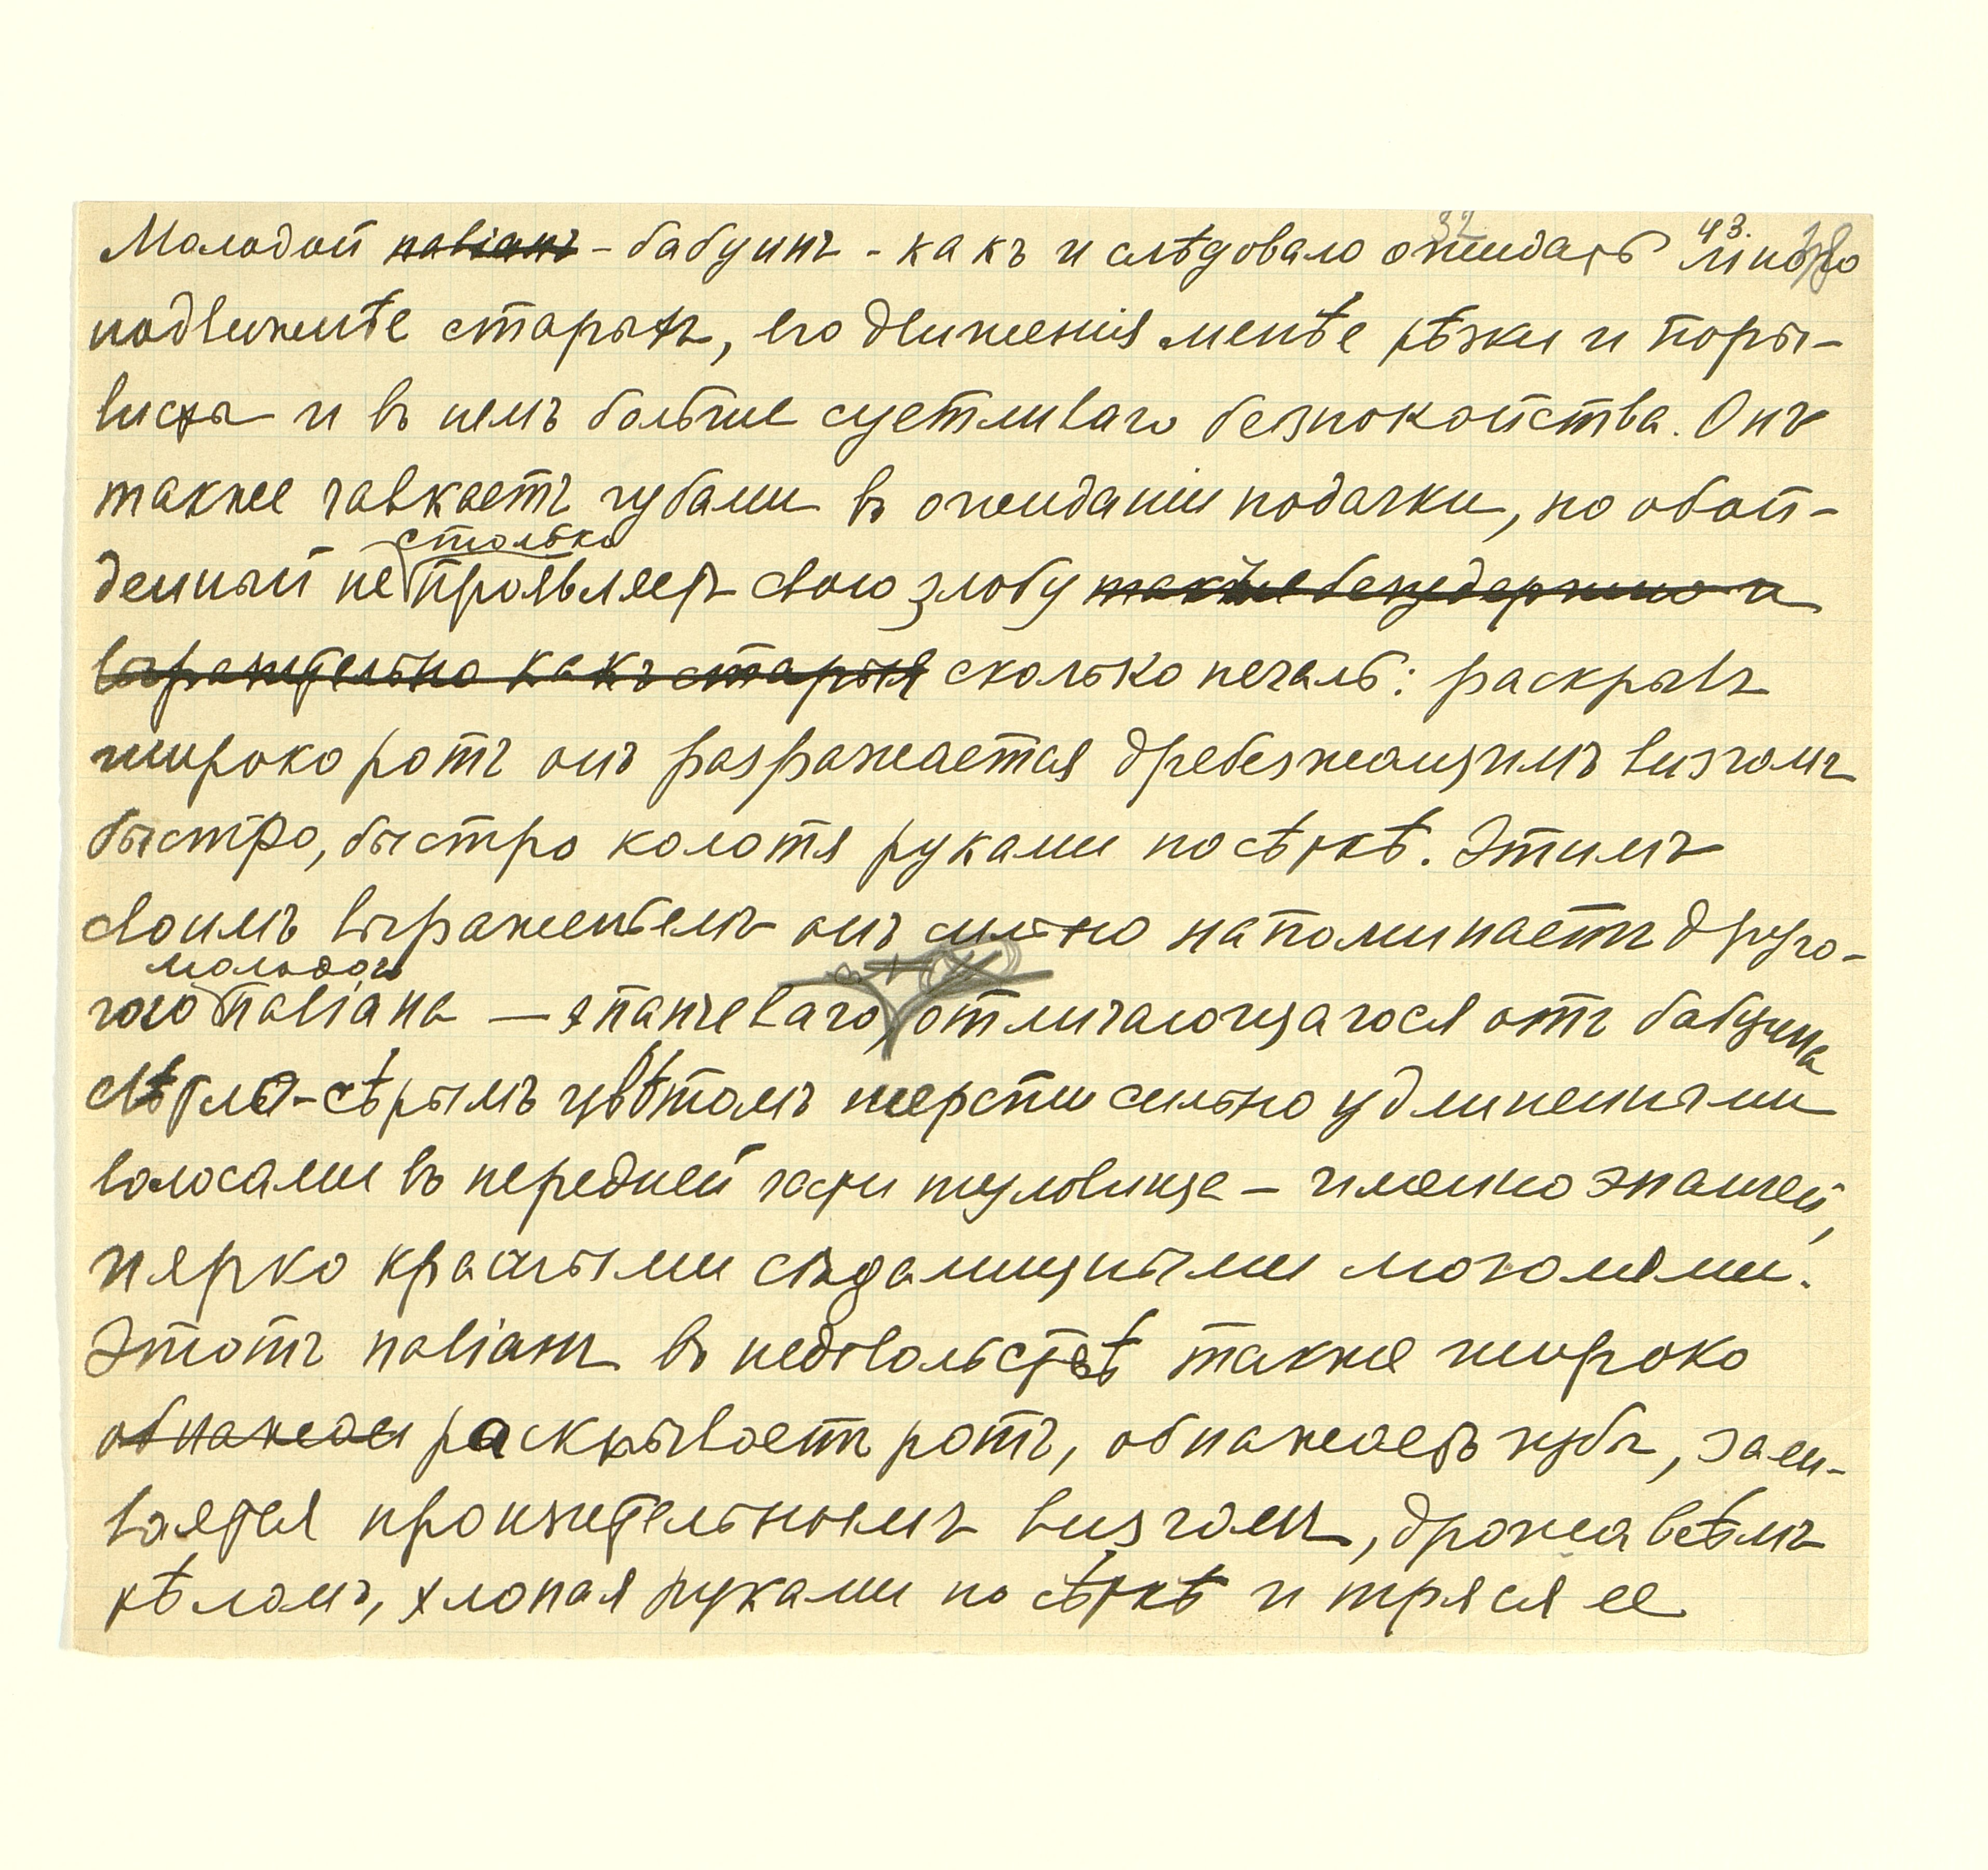 32 43. 38
Молодой павіанъ - бабуинъ - какъ и слѣдовало ожидать много
подвижнѣе старыхъ, его движенія менѣе рѣзки и поры-
висты и въ немъ больше суетливаго безпокойства. Онъ
также чавкаетъ губами въ ожиданіи подачки, но обой-
столько
денный не проявляетъ свою злобу также безудержно и
выразительно какъ старыя сколько печаль: раскрывъ
широко ротъ онъ разражается дребезжащимъ визгомъ
быстро, быстро колотя руками по сѣткѣ. Этимъ
своимъ выраженіемъ онъ сильно напоминаетъ друго-
молодого
гого павіана — эпанчеваго, отличающагося отъ бабуина
свѣтло-сѣрымъ цвѣтомъ шерсти сильно удлиненными
волосами въ передней части туловища - именно эпанчей,
и ярко красными сѣдалищными мозолями.
Этотъ павіанъ въ недовольствѣ также широко
обнажая раскрываетъ ротъ, обнажаетъ зубы, зали-
вается пронзительнымъ визгомъ, дрожа всѣмъ
тѣломъ, хлопая руками по сѣткѣ и тряся ее